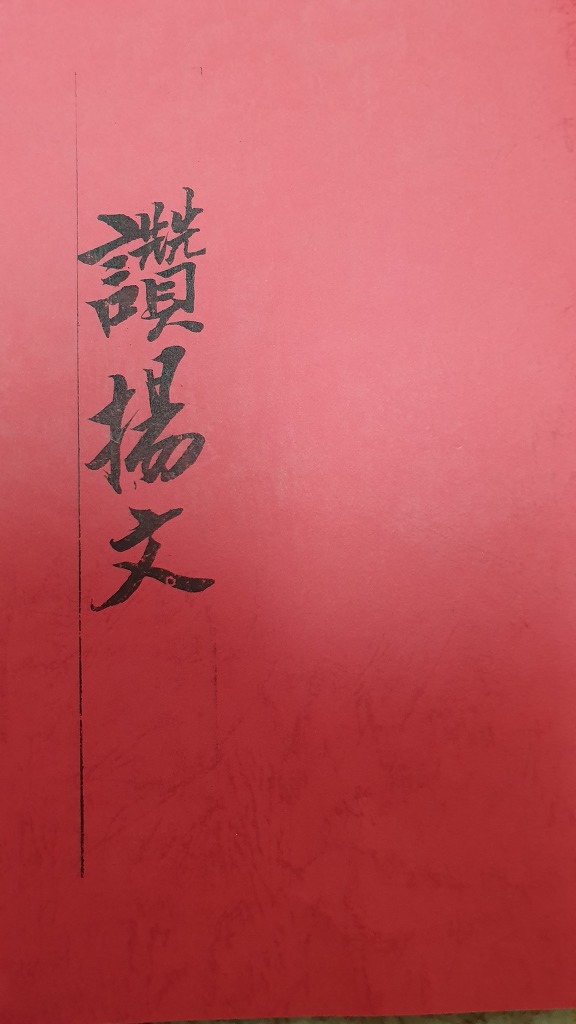 讚揚文